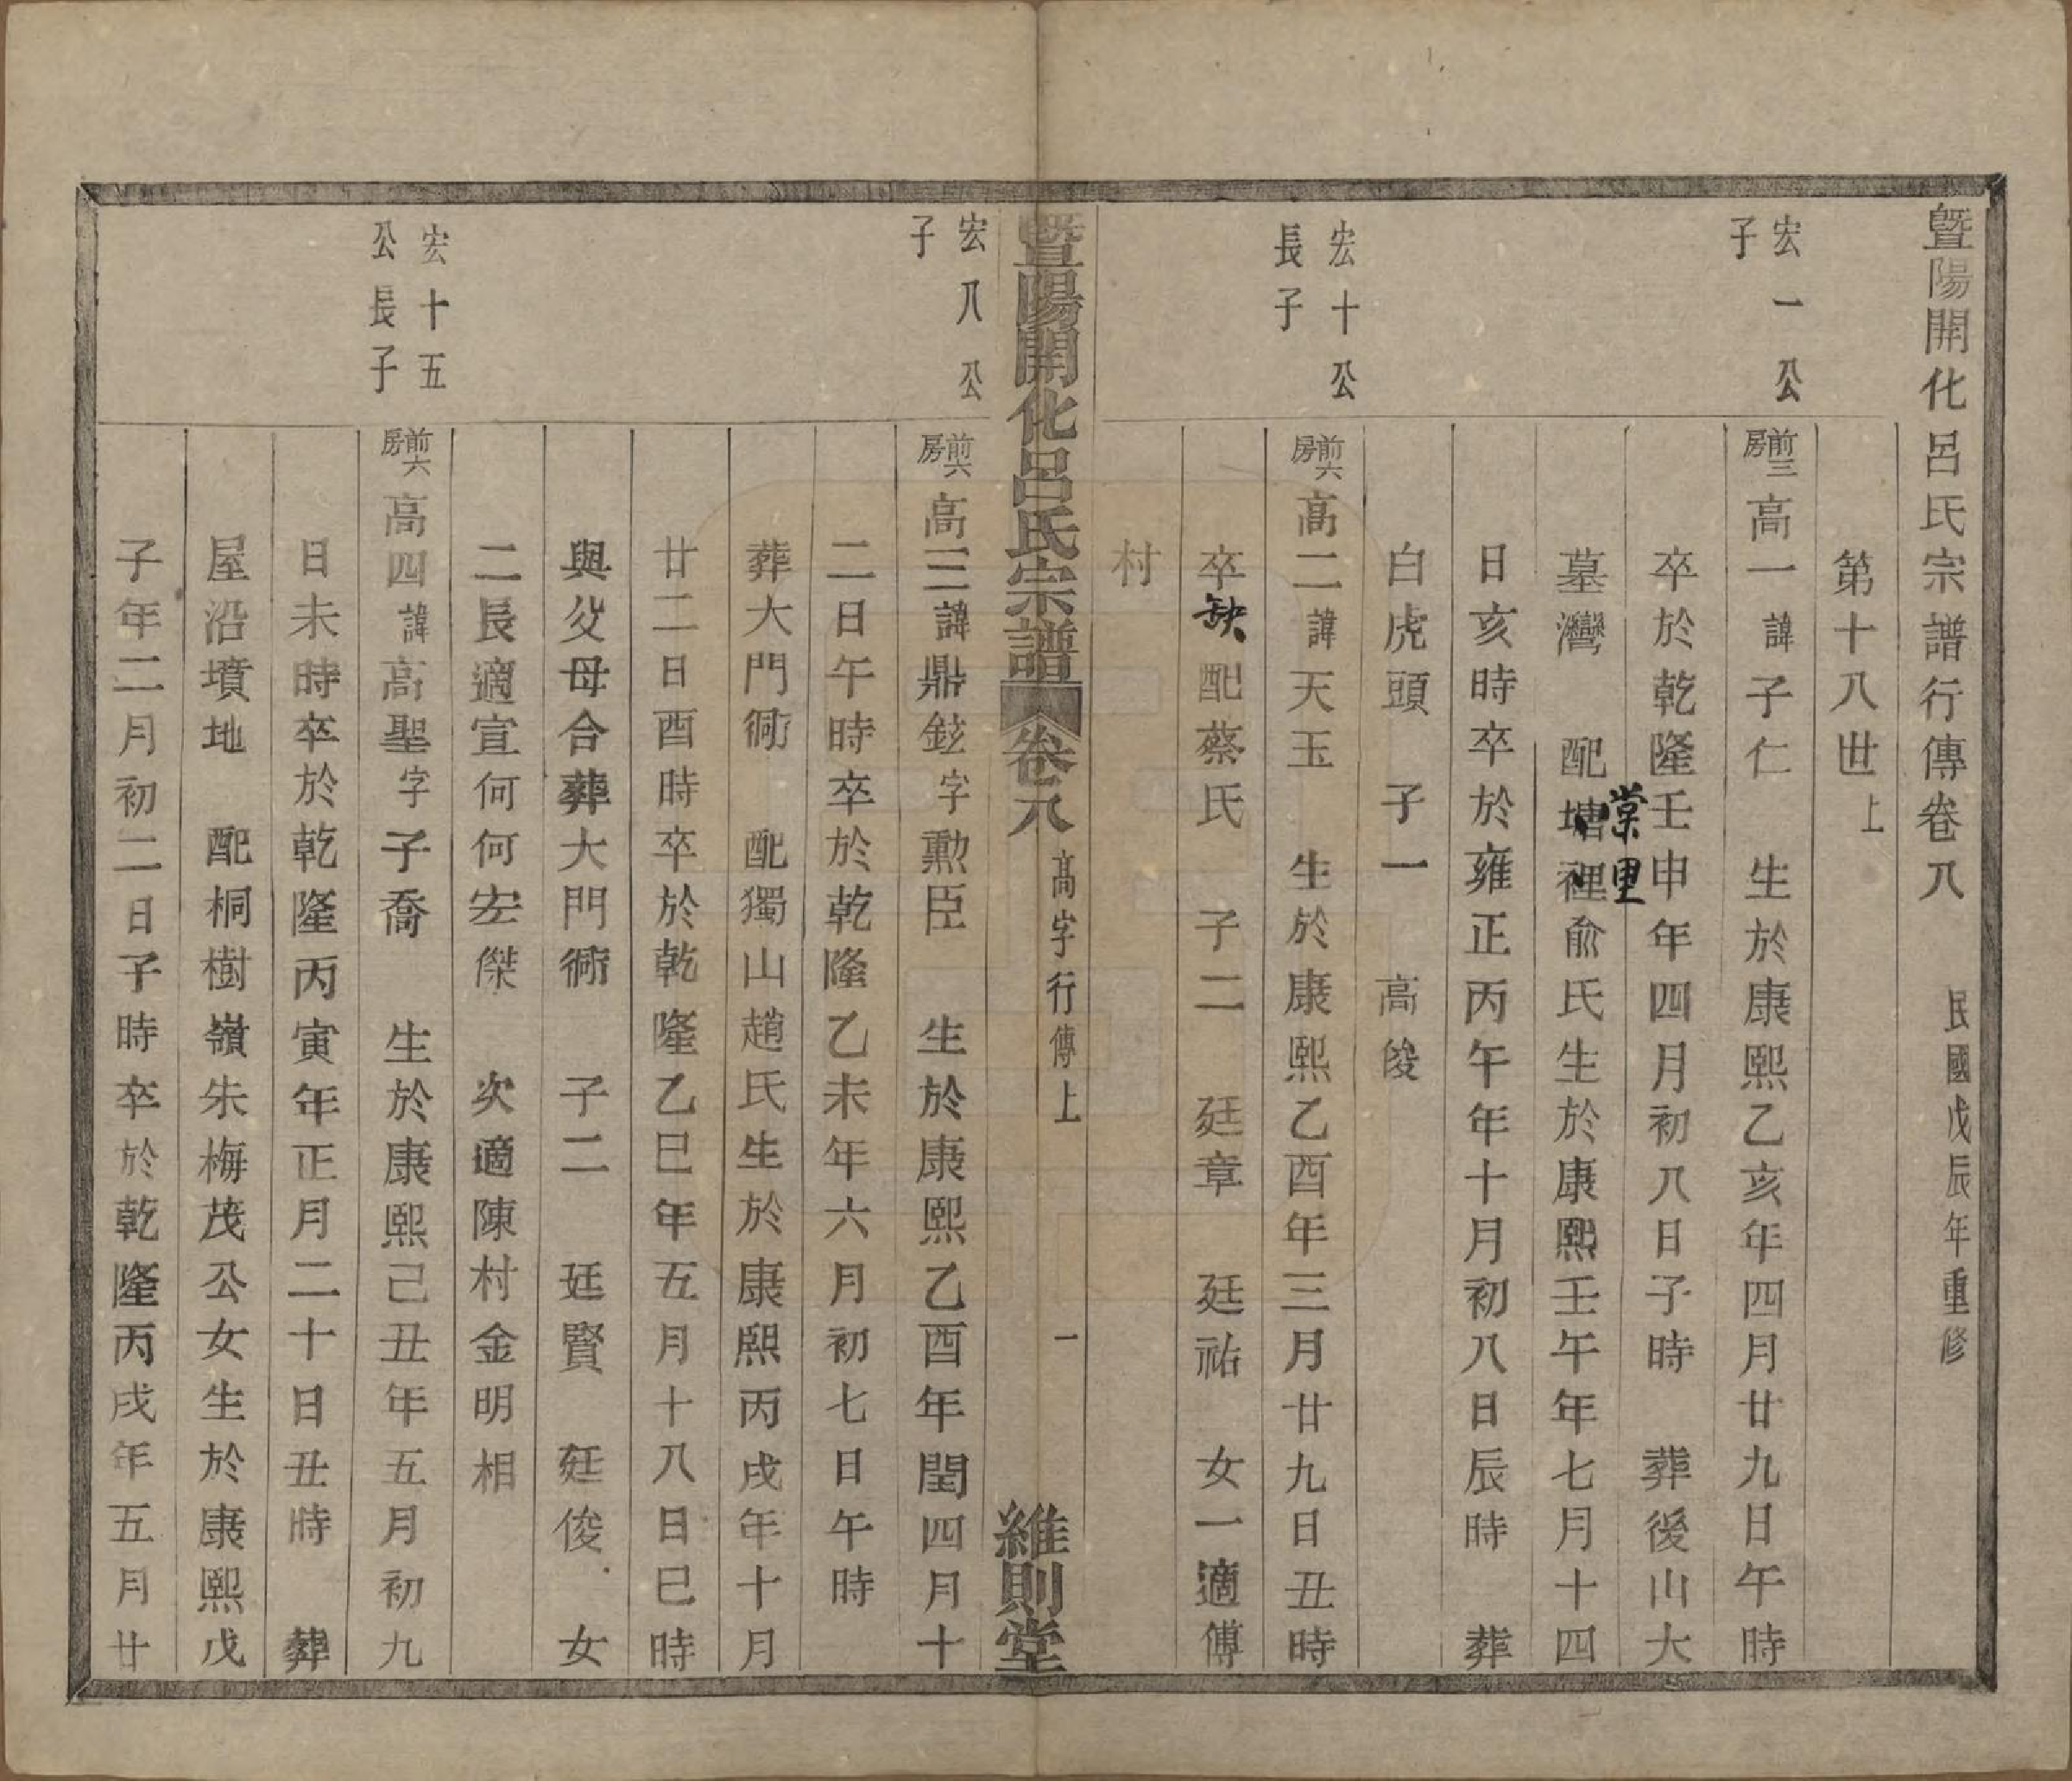 暨陽開化呂氏宗譜行傳卷八　民國戊辰年重修
第十八世上
宏一公子
前三房高一諱子仁　生於康熙乙亥年四月廿九日午時
卒於乾隆壬申年四月初八日子時　葬後山大
墓灣　配塘裡俞氏生於康熙壬午年七月十四
棠里
日亥時卒於雍正丙午年十月初八日辰時　葬
白虎頭　子一　高俊
宏十公長子
前六房高二諱天玉　生於康熙乙酉年三月廿九日丑時
卒缺配蔡氏　子二　廷章　廷祐　女一適傅
村
暨陽開化呂氏宗譜　卷八　高字行傳上　一　維則堂
宏八公子
前六房高三諱鼎鉉字勲臣　生於康熙乙酉年閏四月十
二日午時卒於乾隆乙未年六月初七日午時
葬大門衕　配獨山趙氏生於康熙丙戌年十月
廿二日酉時卒於乾隆乙巳年五月十八日巳時
與父母合葬大門衕　子二　廷賢　廷俊　女
二長適宣何何宏傑　次適陳村金明相
宏十五公長子
前六房高四諱高聖字子喬　生於康熙己丑年五月初九
日未時卒於乾隆丙寅年正月二十日丑時　葬
屋沿墳地　配桐樹嶺朱梅茂公女生於康熙戊
子年二月初二日子時卒於乾隆丙戌年五月廿